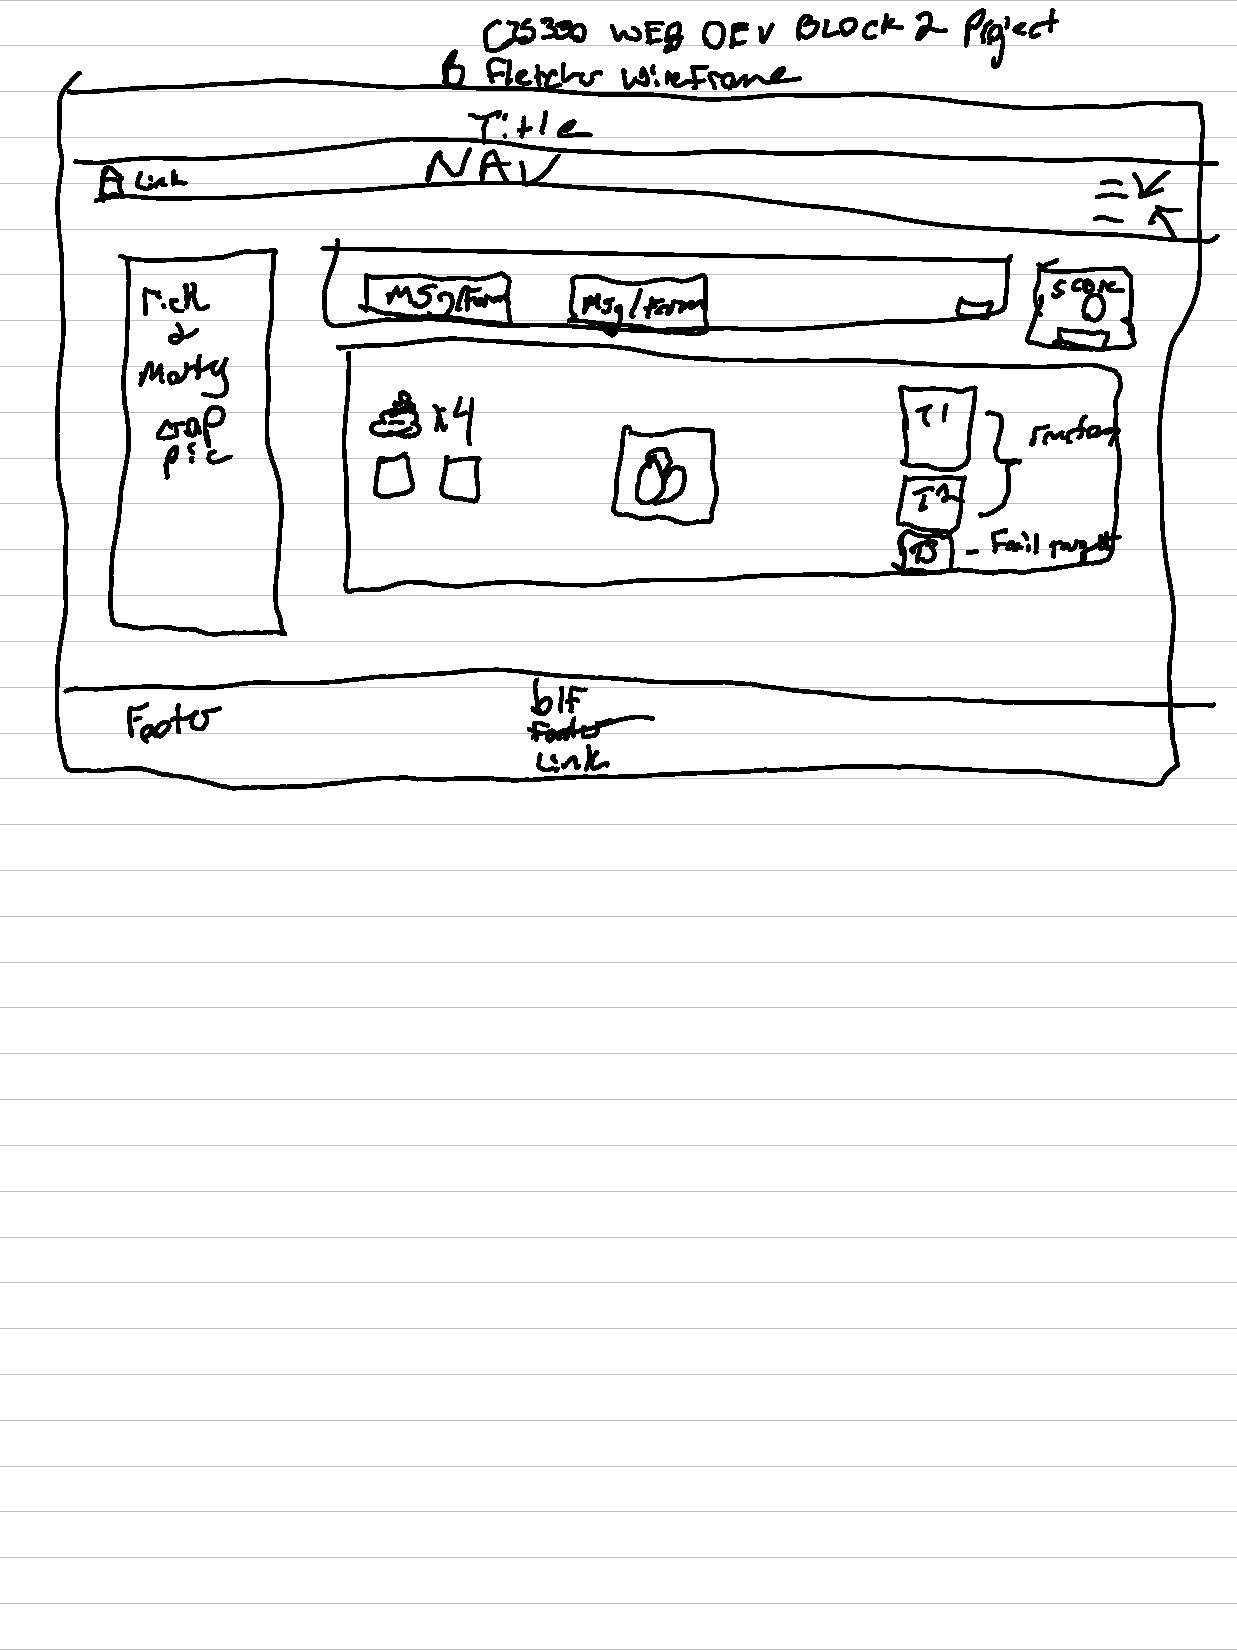 CIS380 WEB DEV BLOCK 2 Project
B Fletcher Wireframe
Title
NAV
A Link
rick
&
Morty
crap
pic
Msg/Form
Msg/Form
score
0
x4
T1
T2
T3 - Fail target
Footer
blf
Footer
Link